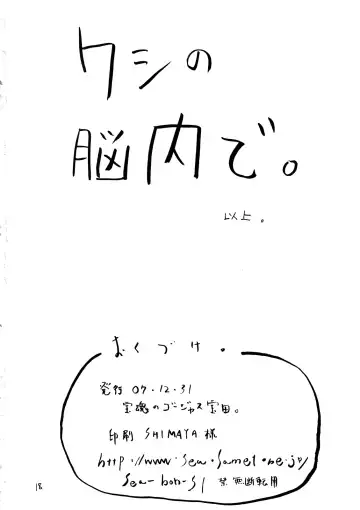 ワシの
脳内で。
以上。
おくづけ。
発行 07・12・31
宝魂のゴージャス宝田。
印刷 SHIMAYA 様
http://www.sea.
sea-bon-s/ 禁無断転用
18